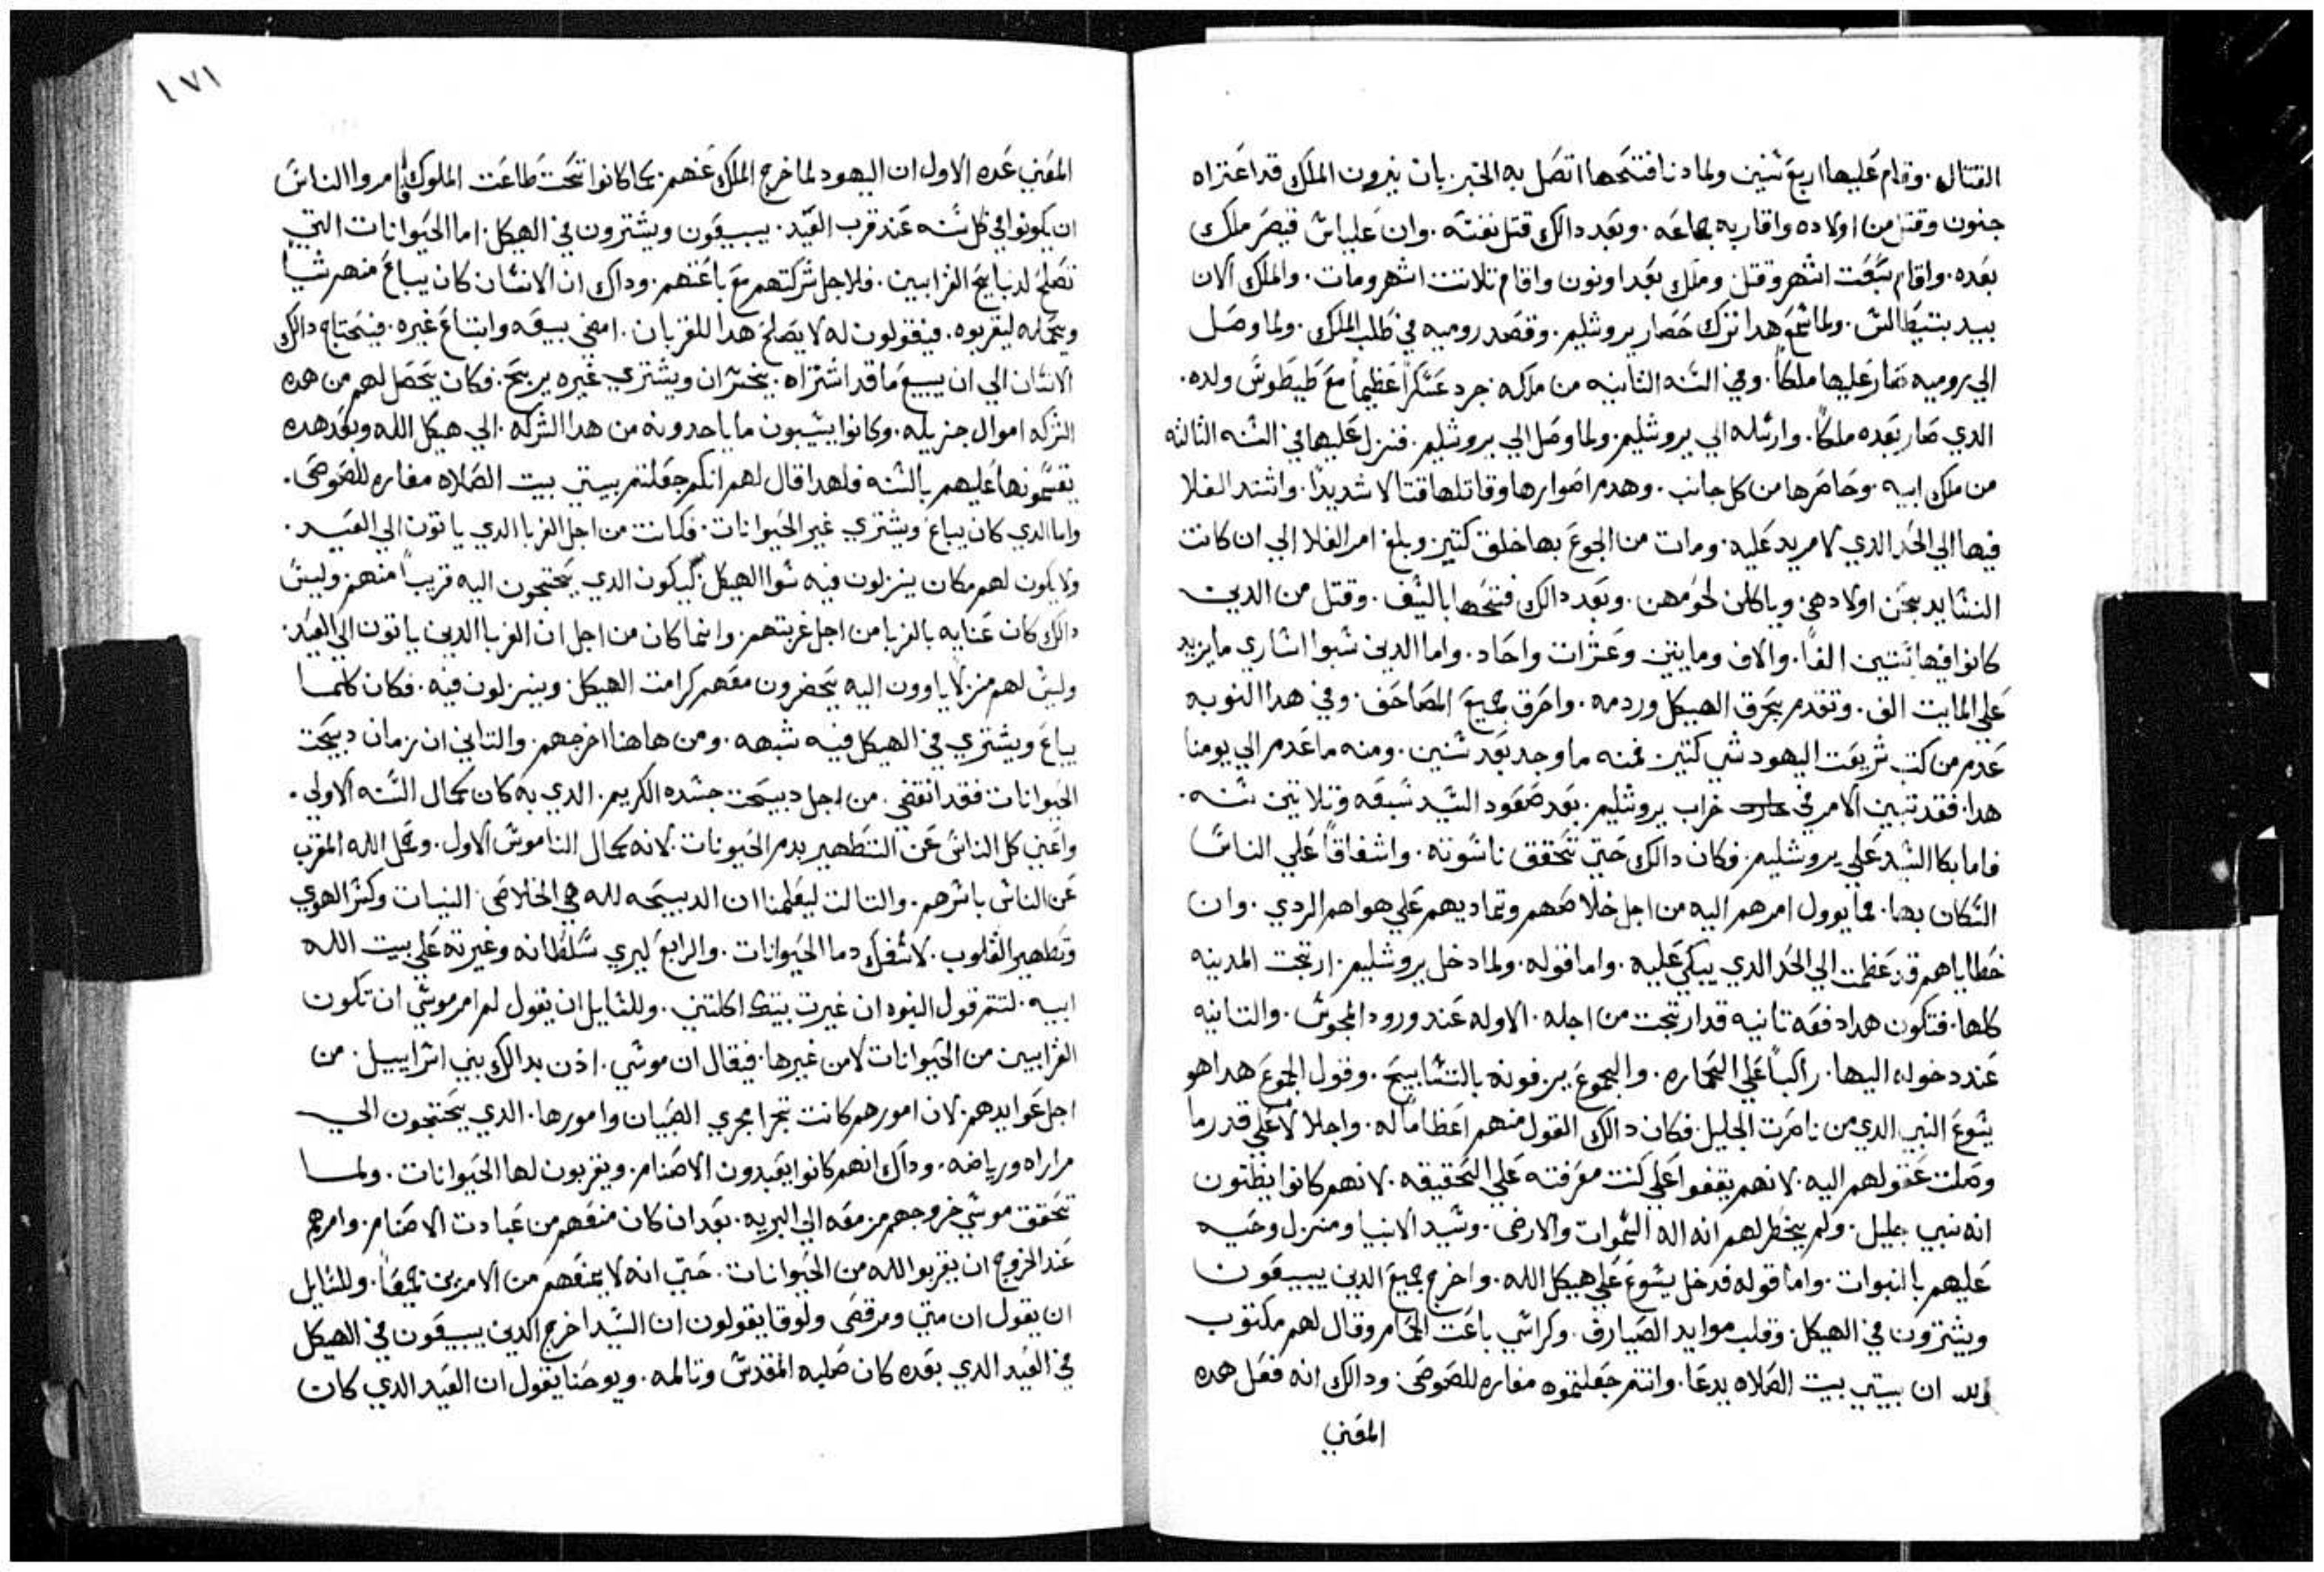 القتال. وقام عليها اربع سنين ولما دنا فتحها اتصل به الخبر. بان نيرون الملك قد اعتراه
جنون وقتل من اولاده واقاربه جماعه. وبعد دالك قتل نفسه. وان غلياس قيصر ملك
بعده. واقام سبعت اشهر وقتل وملك بعد اوتون واقام تلاتت اشهر ومات. والملك الان
بيد بتيطالس. ولما سمع هدا ترك حصار يروشليم. وقصد روميه في طلب الملك. ولما وصل
الي روميه صار عليها ملكاً. وفي السنه التانيه من ملكه جرد عسكراً عظيماً مع طيطوس ولده.
الدي صار بعده ملكاً. وارسله الي يروشليم. ولما وصل الي يروشليم. فنزل عليها في السنه التالته
من ملك ابيه. وحاصرها من كل جانب. وهدم اصوارها وقاتلها قتالا شديداً. واشتد الغلا
فيها الي الحد الدي لا مريد عليه. ومات من الجوع بها خلق كتير. وبلغ امر الغلا الي ان كانت
النسا يدبحن اولادهن وياكلن لحومهن. وبعد دالك فتحها بالسيف. وقتل من الدين
كانوا فيها ستين الفاً. والاف ومايتين وعشرات واحاد. واما الدين سبوا اساري ما يزيد
علي المايت الف. وتقدم بحرق الهيكل وردمه. واحرق جميع المصاحف. وفي هدا النوبه
عدم من كتب شريعت اليهود شي كتير. فمنه ما وجد بعد سنين. ومنه ما عدم الي يومنا
هدا. فقد تبين الامر في خراب يروشليم. بعد صعود السيد سبعه وتلاتين سنه.
فاما بكا السيد علي يروشليم. فكان دالك حتي تتحقق ناسوته. واشفاقاً علي الناس
السكان بها. مما يوول امرهم اليه من اجل خلاصهم وتماديهم علي هواهم الردي. وان
خطاياهم قد عظمت الي الحد الدي يبكي عليه. واما قوله. ولما دخل يروشليم. ارتجت المدينه
كلها. فتكون هدا دفعه تانيه قد ارتجت من اجله. الاوله عند ورود المجوس. والتانيه
عند دخوله اليها. راكباً علي الحماره. والجموع يزفونه بالتسابيح. وقول الجموع هدا هو
يسوع النبي الدي من ناصرت الجليل. فكان دالك القول منهم اعظاماً له. واجلالاً علي قدر ما
وصلت عقولهم اليه. لانهم يقفوا علي كنت معرفته علي الحقيقه. لانهم كانوا يظنون
انه نبي جليل. ولم يخطر لهم انه اله السموات والارض. وسيد الانبيا ومنزل وحيه
عليهم بالنبوات. واما قوله فدخل يسوع علي هيكل الله. واخرج جميع الدين يبيعون
ويشترون في الهيكل. وقلب موايد الصيارف. وكراسي باعت الحمام وقال لهم مكتوب
ان بيتي بيت الصلاه يدعا. وانتم جعلتموه مغاره للصوص. ودالك انه فعل هده
المعني
٤٧١
المعني عده الاول ان اليهود لما خرج الملك عنهم. بما كانوا تحت طاعت الملوك امروا الناس
ان يكونوا في كل سنه عند قرب العيد. يبيعون ويشترون في الهيكل. اما الحيوانات التي
تصلح لدبايح القرابين. فلاجل شركتهم مع باعتهم. وداك ان الانسان كان يباع منهم شيا
ويحمله ليقربوه. فيقولون له لا يصلح هدا للقربان. امضي بيعه وابتاع غيره. فيحتاج دالك
الانسان الي ان يبيع ما قد اشتراه. بخسران ويشتري غيره بربح. فكان يتحصل لهم من هده
الشركه اموال جزيله. وكانوا ينسبون ما ياخدونه من هدا الشركه. الي هيكل الله وبعد هده
يقسمونها عليهم بالسنه فلهدا قال لهم انكم جعلتم بيتي بيت الصلاه مغاره للصوص.
واما الدي كان يباع ويشتري غير الحيوانات. فكانت من اجل الغربا الدي ياتون الي العيد.
ولا يكون لهم مكان ينزلون فيه سوا الهيكل. ليكون الدي يحتجون اليه قريباً منهم. وليس
دالك كان عنايه بالغربا من اجل غربتهم. وانما كان من اجل ان الغربا الدين ياتون الي العيد.
وليس لهم منزلاً ياوون اليه يتحضرون معهم كرامت الهيكل. وينزلون فيه. فكان كلما
يباع ويشتري في الهيكل فيه شبهه. ومن هاهنا اخرجهم. والتاني ان زمان دبيحت
الحيوانات فقد انقضي. من اجل دبيحت جسده الكريم. الدي به كان كمال السنه الاولي.
واغني كل الناس عن التطهير بدم الحيونات. لانه كمال الناموس الاول. وحمل الله المقرب
عن الناس باسرهم. والتالت ليعلمنا ان الدبيحه لله هي اخلاص النيات وكسر الهوي
وتطهير القلوب. لا سفك دما الحيوانات. والرابع ليري سلطانه وغيرته علي بيت الله
ابيه. لتتم قول النبوه ان غيرت بيتك اكلتني. وللسايل ان يقول لم امر موسي ان تكون
القرابين من الحيوانات لا من غيرها. فيقال ان موسي. ادن بدالك بني اسراييل. من
اجل عوايدهم. لان امورهم كانت تجرا مجري الصبيان وامورها. الدي يحتجون الي
مراراه ورياضه. وداك انهم كانوا يعبدون الاصنام. ويقربون لها الحيوانات. ولما
تحقق موسي خروجهم من معه الي البريه. بعد ان كان منعهم من عبادت الاصنام. وامرهم
عند الخروج ان يقربوا لله من الحيوانات. حتي انه لا يمنعهم من الامرين جميعاً. وللسايل
ان يقول ان متي ومرقص ولوقا يقولون ان السيد اخرج الدين يبيعون في الهيكل
في العيد الدي بعده كان صلبه المقدس وتالمه. ويوحنا يقول ان العيد الدي كان